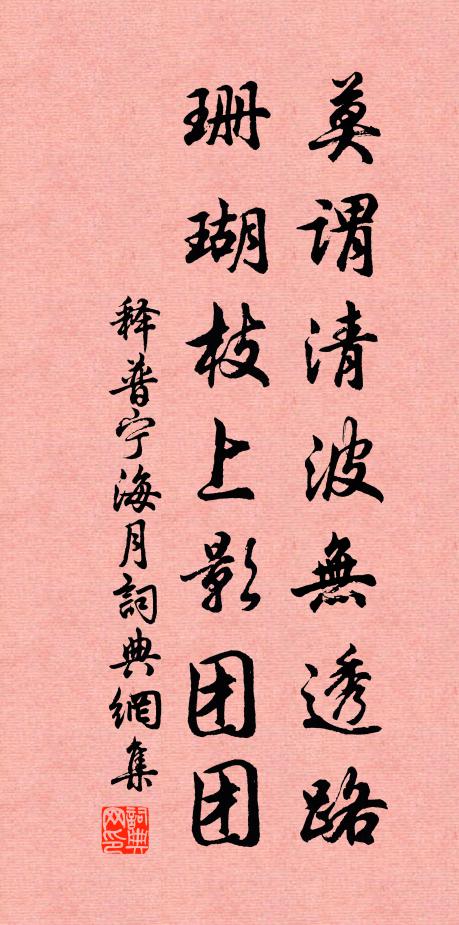 莫谓清波無透路
珊瑚枝上影团团
释普宁海月詞典網集
詞典网印